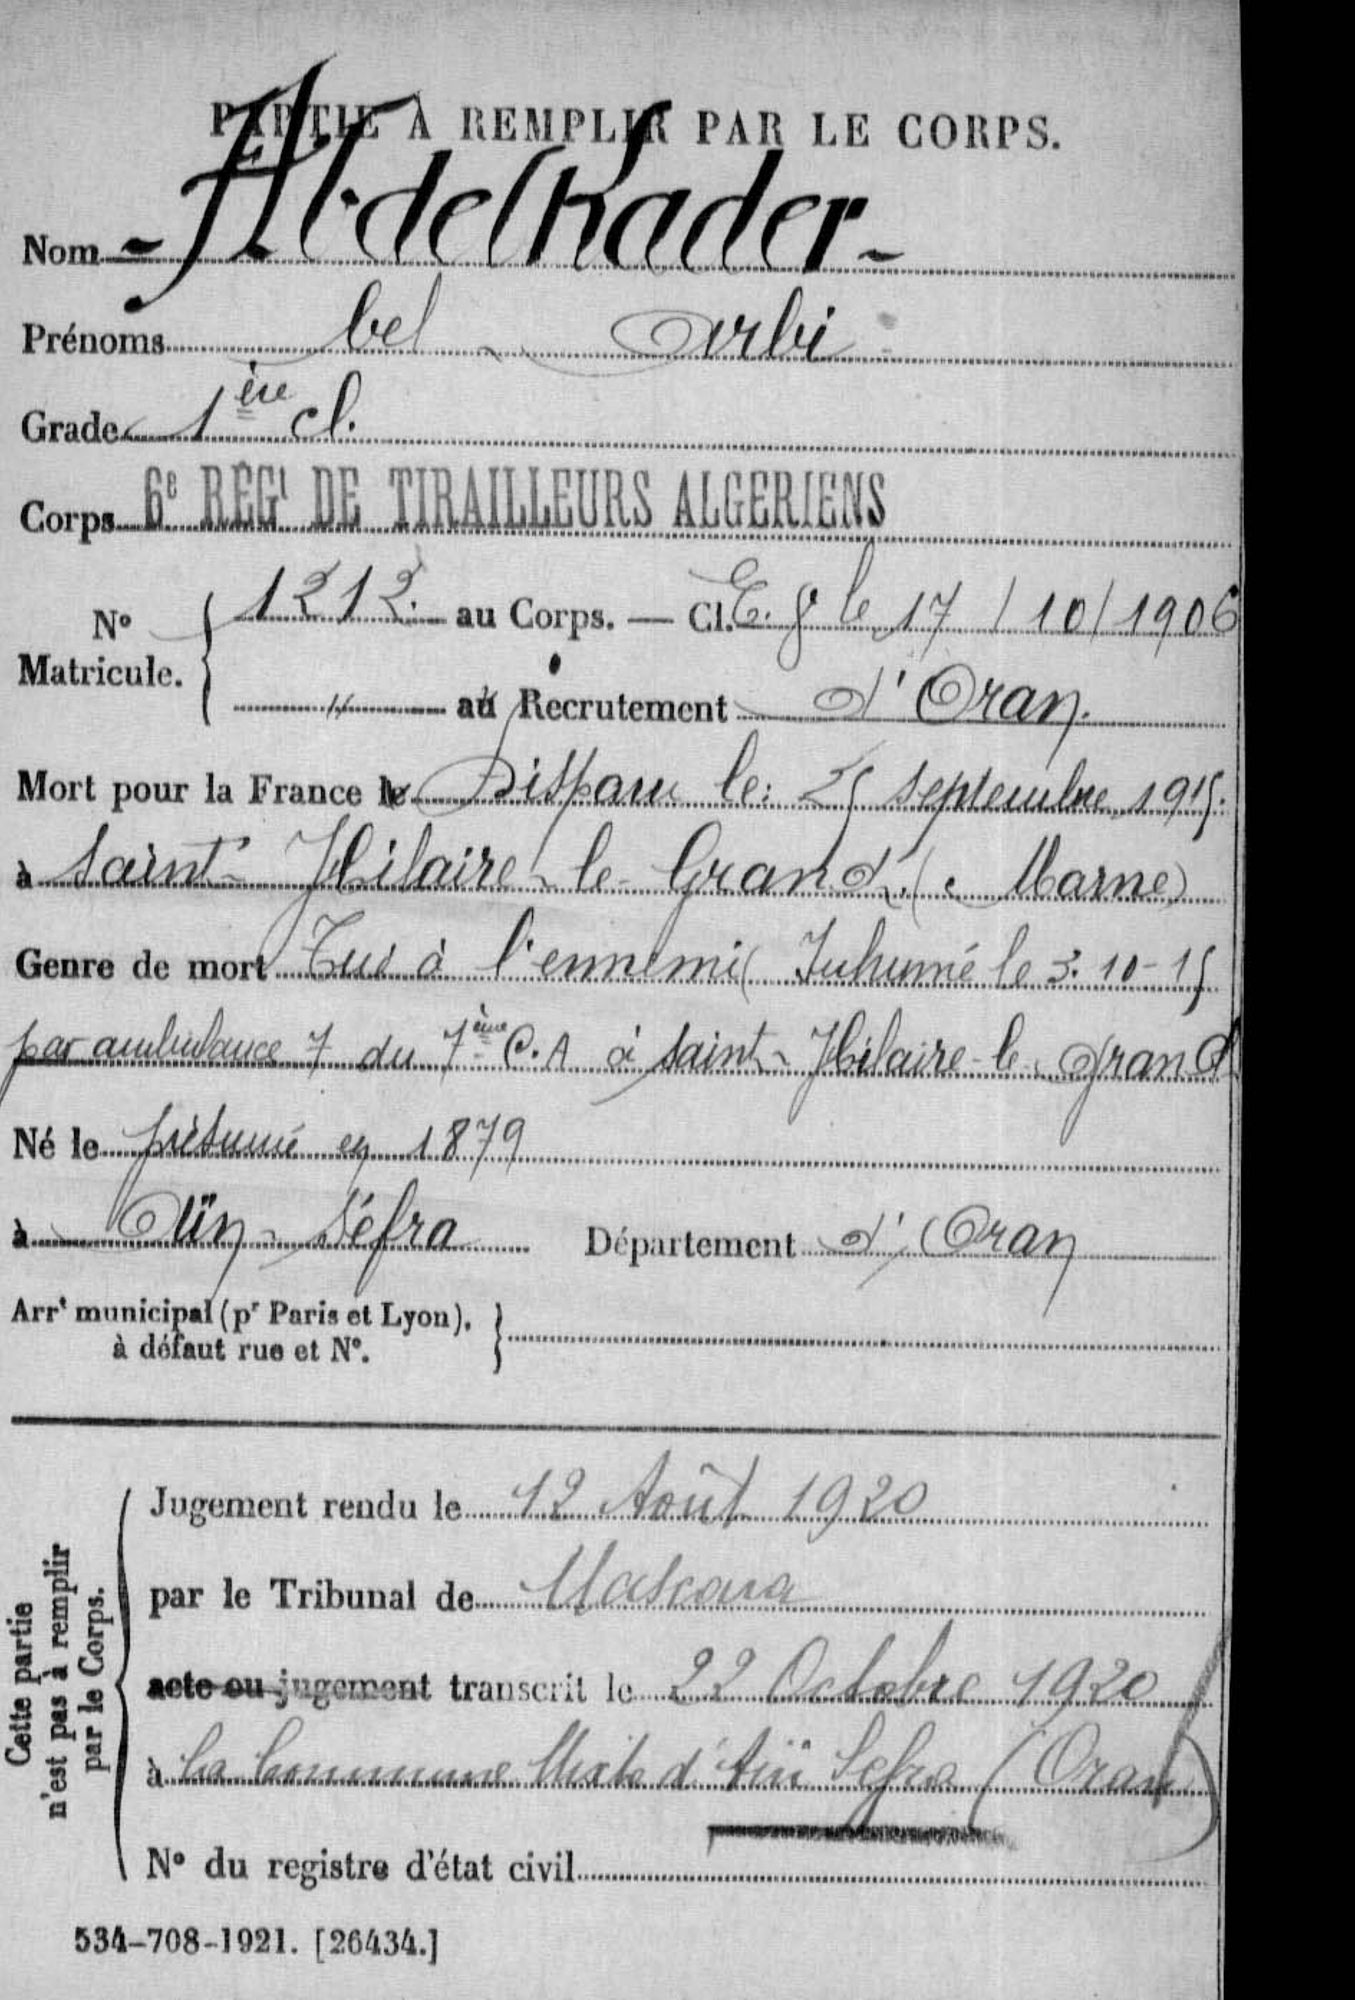 PARTIE À REMPLIR PAR LE CORPS.
Nom - Abdelkader -
Prénoms bel Arbi
Grade 1ère cl.
Corps 6e RÉGt DE TIRAILLEURS ALGERIENS
No Matricule. { 1212. au Corps. — Cl. E. g. le 17/10/1906
" au Recrutement d'Oran.
Mort pour la France le Disparu le: 25 septembre 1915.
à Saint-Hilaire-le-Grand. (Marne)
Genre de mort Tué à l'ennemi (Inhumé le 3.10-15
par ambulance 7 du 7ème C.A à Saint-Hilaire-le-Grand
Né le présumé en 1879
à Aïn-Séfra Département d'Oran
Arrt municipal (pr Paris et Lyon),
à défaut rue et No.
Cette partie
n'est pas à remplir
par le Corps.
Jugement rendu le 12 Août 1920
par le Tribunal de Mascara
acte ou jugement transcrit le 22 Octobre 1920
à la Commune Mixte d'Aïn Sefra (Oran)
No du registre d'état civil
534-708-1921. [26434.]